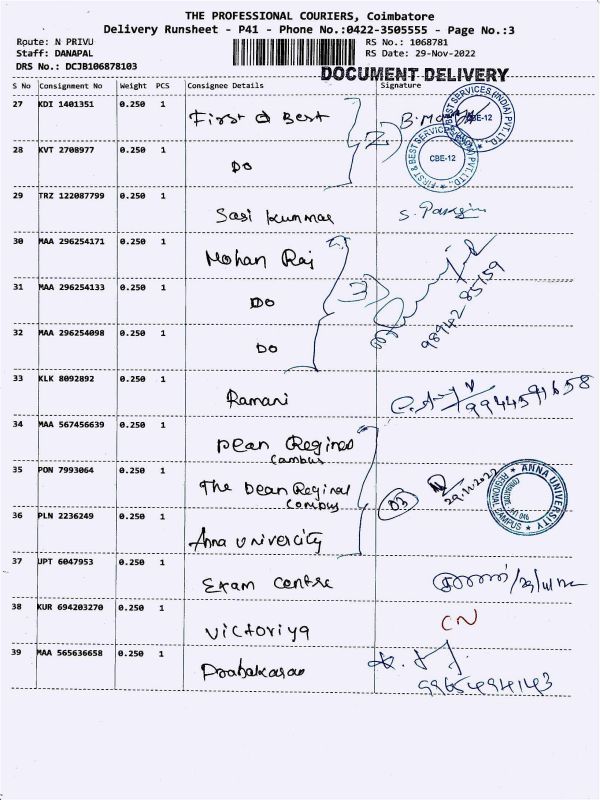 THE PROFESSIONAL COURIERS, Coimbatore
Delivery Runsheet - P41 - Phone No.:0422-3505555 - Page No.:3
Route: N PRIVU
Staff: DANAPAL
DRS No.: DCJB106878103
RS No.: 1068781
RS Date: 29-Nov-2022
DOCUMENT DELIVERY
S No Consignment No Weight PCS Consignee Details Signature
27 KDI 1401351 0.250 1 First & Best
28 KVT 2708977 0.250 1 DO
FIRST & BEST SERVICES (INDIA) PVT. LTD.,
CBE-12
29 TRZ 122087799 0.250 1 Sasi Kummar
30 MAA 296254171 0.250 1 Mohan Raj
31 MAA 296254133 0.250 1 DO 3
98942 85159
32 MAA 296254098 0.250 1 DO
33 KLK 8092892 0.250 1 Ramani
34 MAA 567456639 0.250 1 Dean Reginal
Campus
35 PON 7993064 0.250 1 The Dean Reginal
Campus
03 29.11.2022
ANNA UNIVERSITY
REGIONAL CAMPUS
36 PLN 2236249 0.250 1 Anna Univercity
37 UPT 6047953 0.250 1 Exam Centre
38 KUR 694203270 0.250 1 Victoriya CN
39 MAA 565636658 0.250 1 Prabakaran